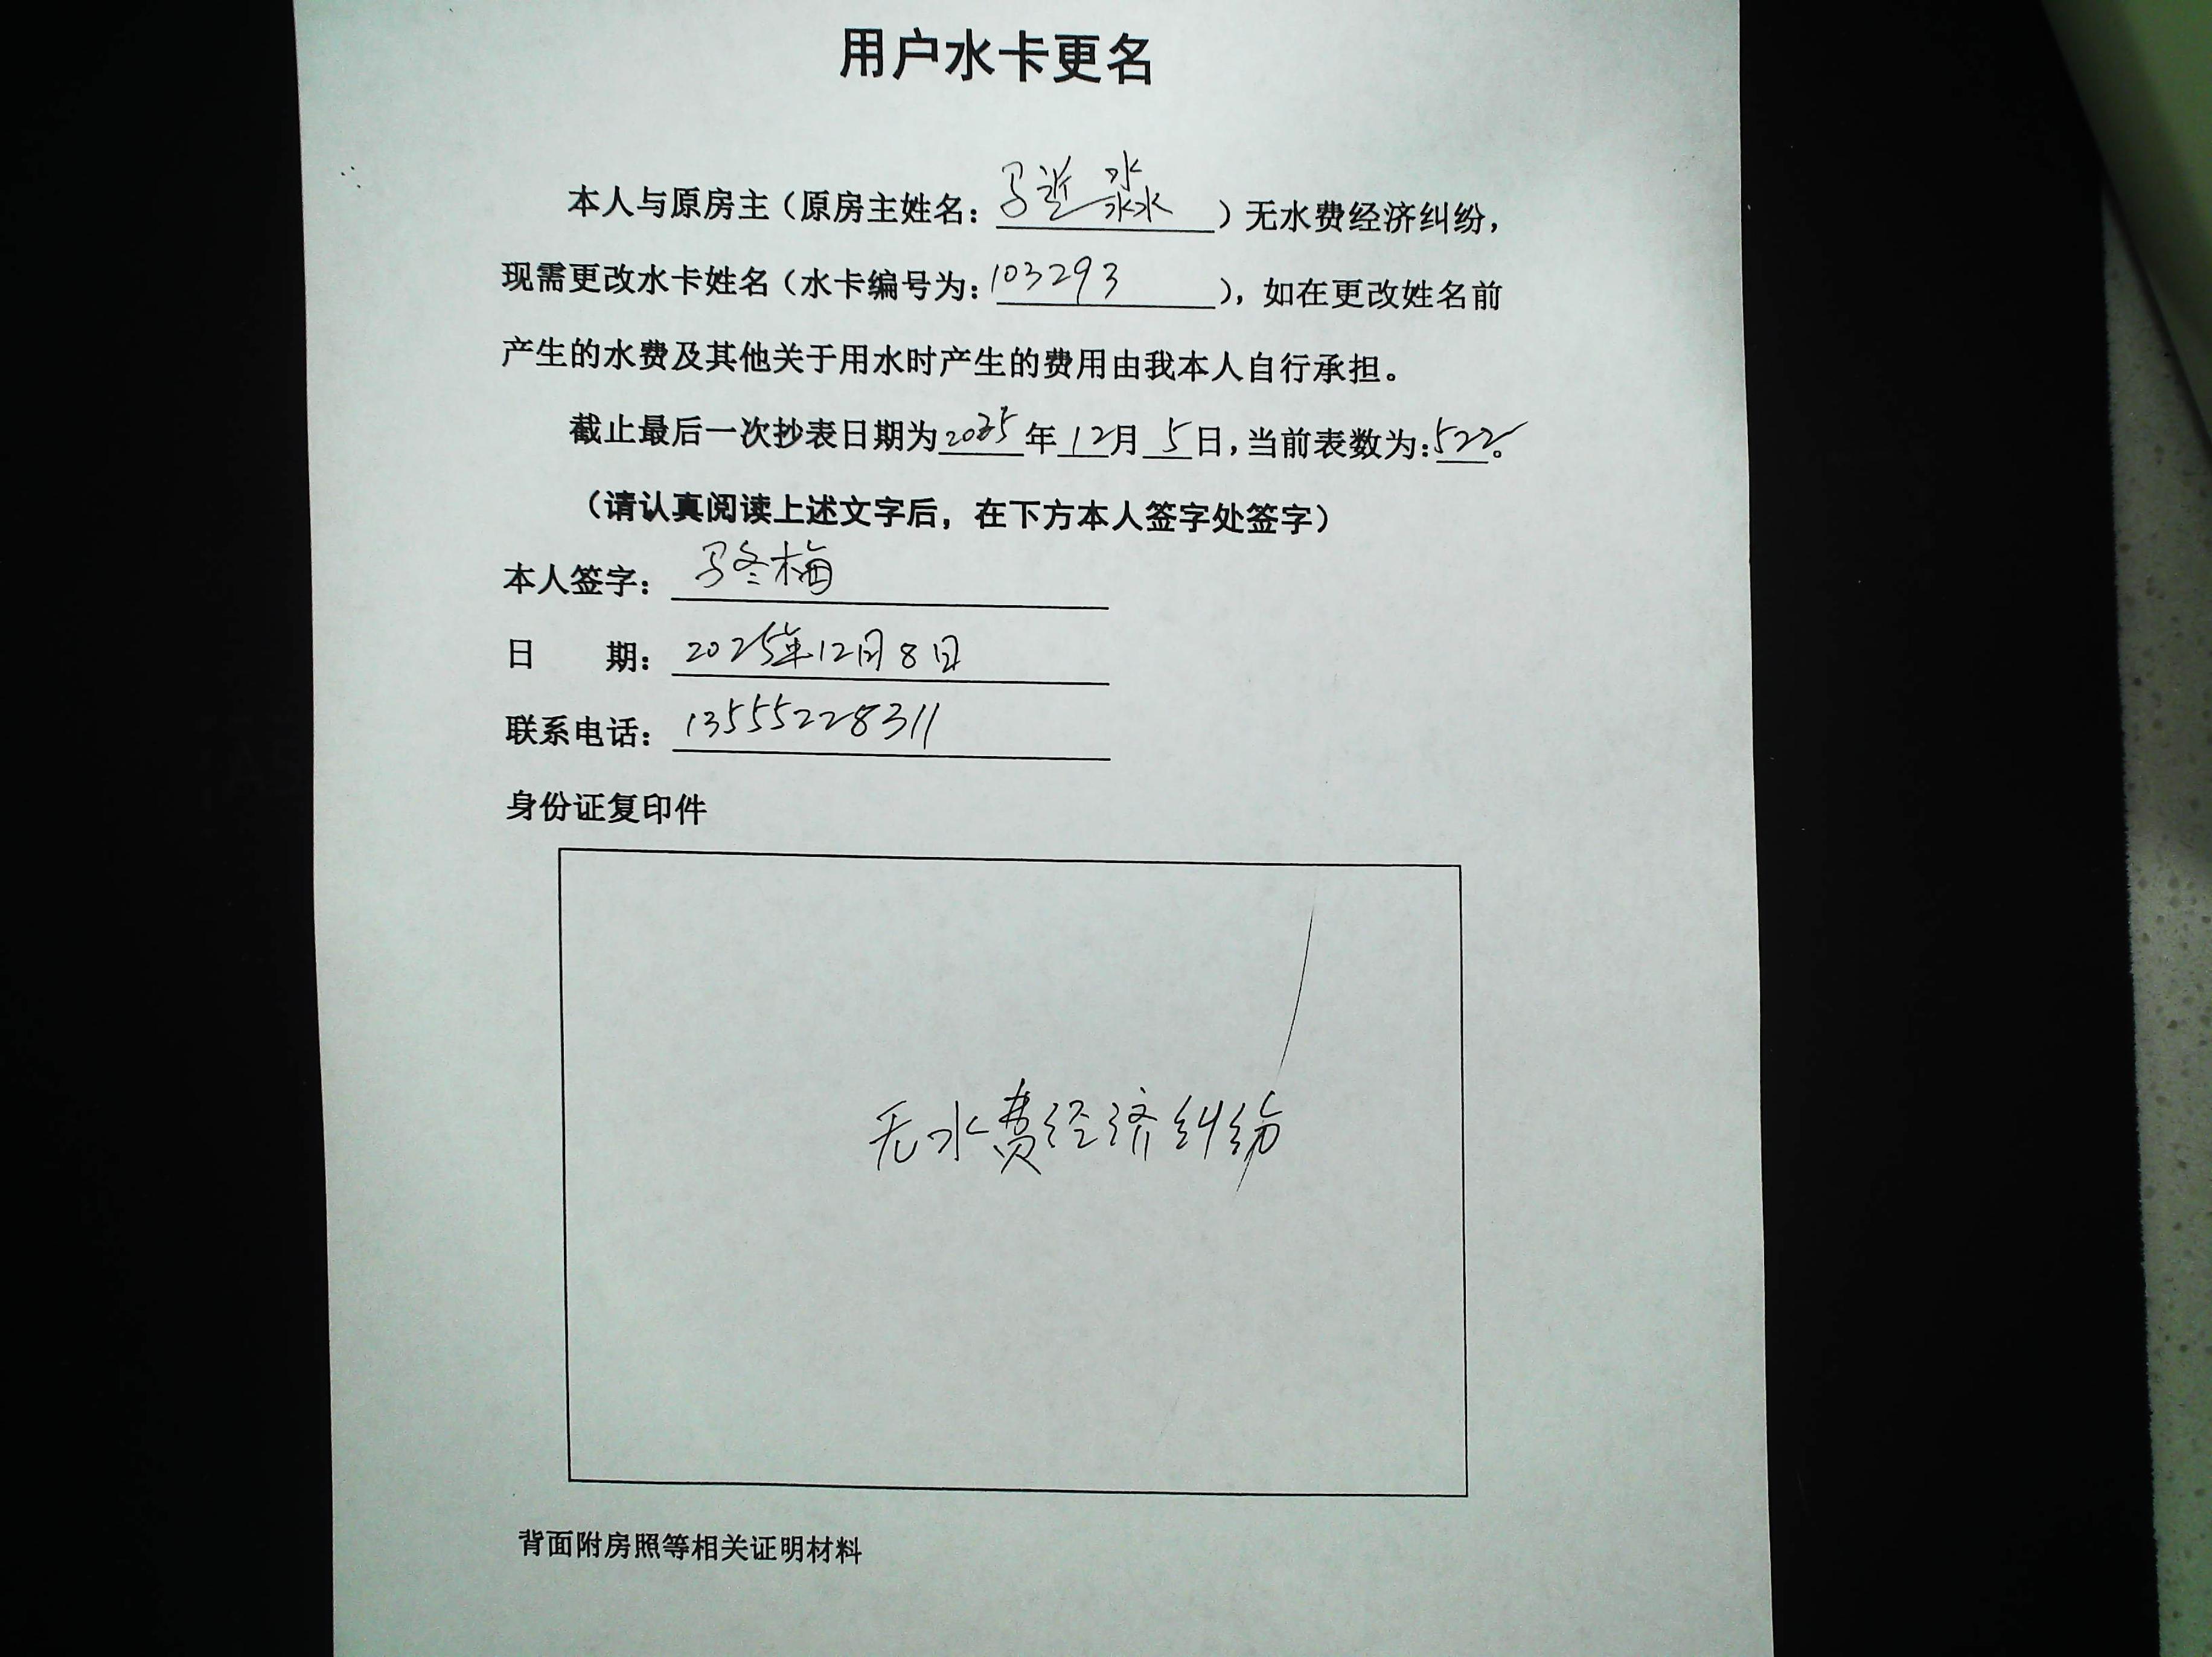 用户水卡更名
本人与原房主（原房主姓名：马 淼）无水费经济纠纷，
现需更改水卡姓名（水卡编号为：103293），如在更改姓名前
产生的水费及其他关于用水时产生的费用由我本人自行承担。
截止最后一次抄表日期为2025年12月5日，当前表数为：522。
（请认真阅读上述文字后，在下方本人签字处签字）
本人签字：马冬梅
日 期：2025年12月8日
联系电话：13555228311
身份证复印件
无水费经济纠纷
背面附房照等相关证明材料